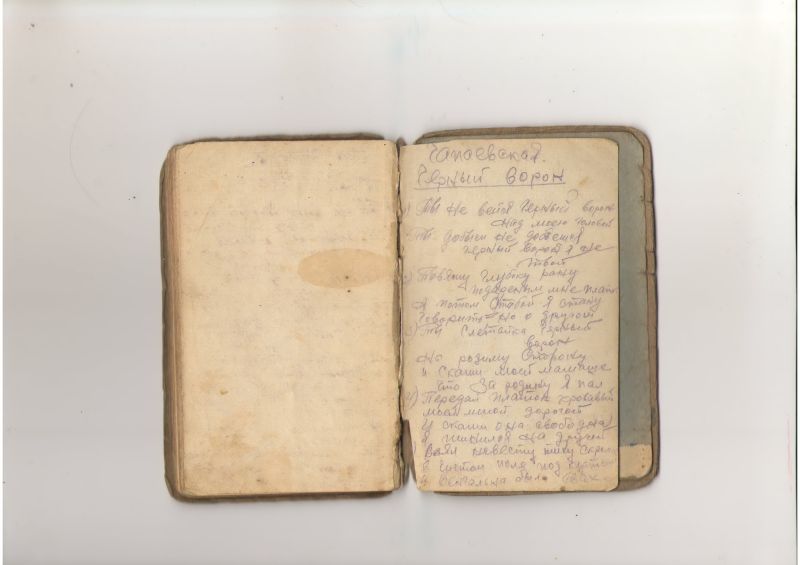 Чапаевская.
Черный ворон
1) Ты не вейся черный ворон
над моею головой
Ты добычи не добешся
черный ворон я не
твой
2) Повяжу глубоку рану
подареным мне плат
А потом стобой я стану
говорить но о другом
3) Ты слетайка черный
ворон
на родиму сторону
и скажи моей мамаше
что за родину я пал
4) Передай платок кровавый
моей милой дорогой
и скажи она свободна
я женился на другой
Взял невесту тиху скром
в чистом поле под кустом
была